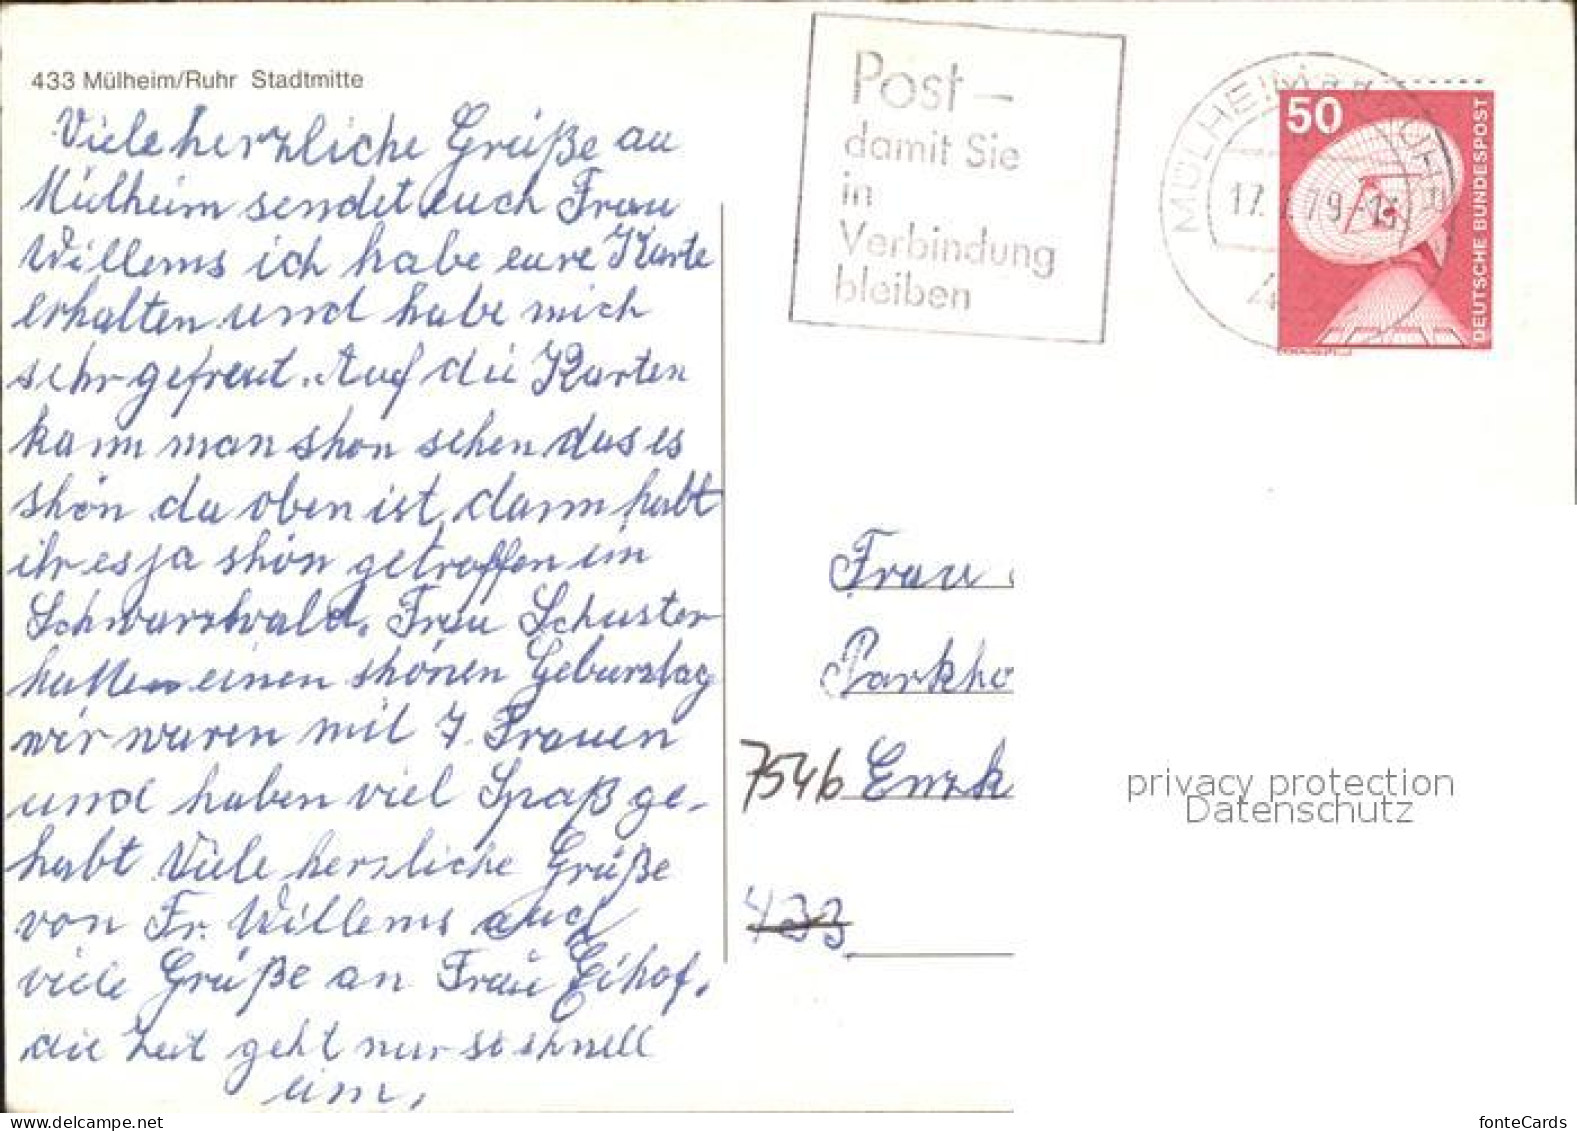 433 Mülheim/Ruhr Stadtmitte
Viele herzliche Grüße au
Mülheim sendet euch Frau
Willems ich habe eure Karte
erhalten und habe mich
sehr gefreut. Auf die Karten
kann man shon sehen das es
shön da oben ist, dann habt
ihr es ja shön getroffen im
Schwarzwald. Frau Schuster
hatte einen shönen Geburztag
wir waren mit 7 Frauen
und haben viel Spaß ge-
habt Viele herzliche Grüße
von Fr. Willems auch
viele Grüße an Frau Eihof,
die Zeit geht nur so shnell
um,
Post –
damit Sie
in
Verbindung
bleiben
MÜLHEIM
17. 79-13
4
50
DEUTSCHE BUNDESPOST
Frau
Parkho
7546 Enzk
433
privacy protection
Datenschutz
www.delcampe.net
fonteCards